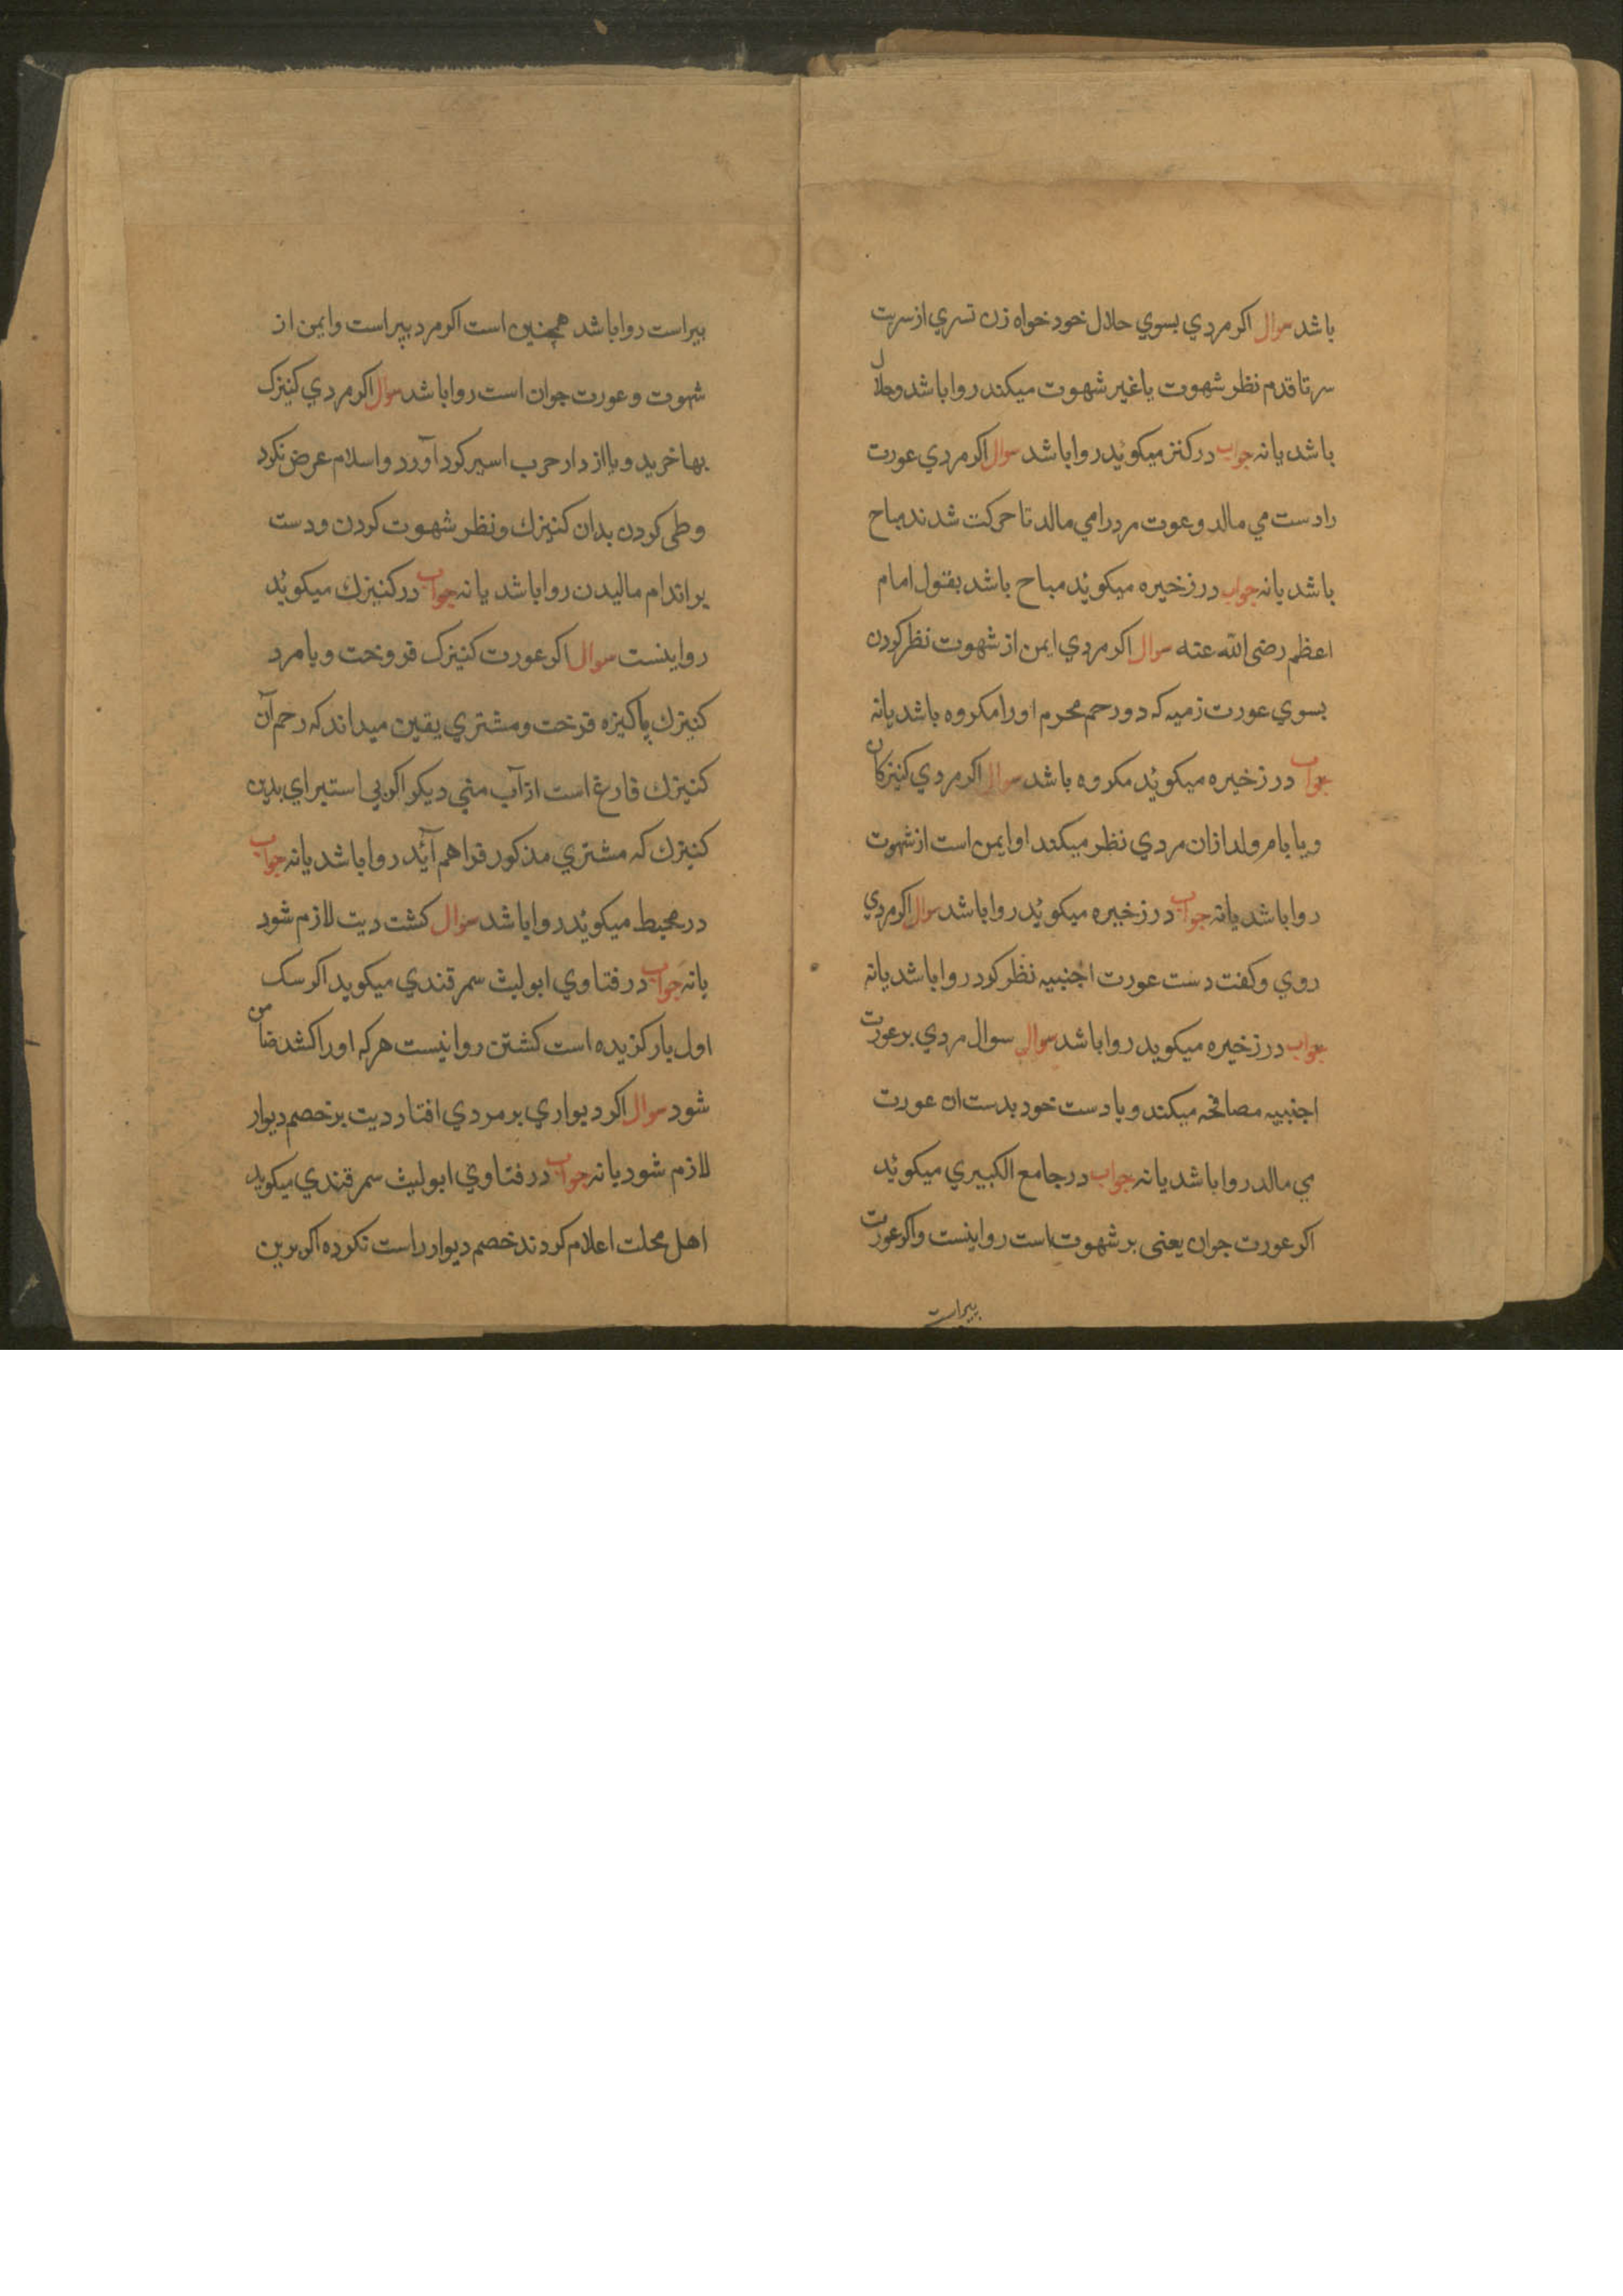 باشد سوال اکر مردي بسوي حلال خود خواه زن تسري از سریت
سر تا قدم نظر شهوت یا غیر شهوت میکند روا باشد وحلال
باشد یا نه جواب در کنز میکوئد روا باشد سوال اکر مردي عورت
را دست مي مالد و عوت مرد را مي مالد تا حرکت شدند مباح
باشد یا نه جواب در زخیره میکوئد مباح باشد بقول امام
اعظم رضی الله عنه سوال اکر مردي ایمن از شهوت نظر کردن
بسوي عورت زمیه که دو رحم محرم او را مکروه باشد یا نه
جواب در زخیره میکوئد مکروه باشد سوال اکر مردي کنیزکان
و یا بام ولد ازان مردي نظر میکند او ایمن است از شهوت
روا باشد یا نه جواب در زخیره میکوئد روا باشد سوال اکر مردي
روي و کفت دست عورت اجنبیه نظر کرد روا باشد یا نه
جواب در زخیره میکوید روا باشد سوال سوال مردي بر عورت
اجنبیه مصافحه میکند و یا دست خود بدست ان عورت
مي مالد روا باشد یا نه جواب در جامع الکبیري میکوئد
اکر عورت جوان یعنی بر شهوت است روا ینست و اکر عورت
پیر است
پیر است روا باشد همچنین است اکر مرد پیر است و ایمن از
شهوت و عورت جوان است روا باشد سوال اکر مردي کنیزک
بها خرید و یا از دار حرب اسیر کرد آورد و اسلام عرض نکرد
وطی کردن بدان کنیزك و نظر شهوت کردن و دست
بر اندام مالیدن روا باشد یا نه جواب در کنیزك میکوئد
روا ینست سوال اکر عورت کنیزک فروخت و یا مرد
کنیزك پاکیزه فرخت و مشتري یقین میداند که رحم آن
کنیزك فارغ است از آب مني دیکر اکر بي استبراي بدین
کنیزك که مشتري مذکور فراهم آئد روا باشد یا نه جواب
در محیط میکوئد روا باشد سوال کشت دیت لازم شود
یا نه جواب در فتاوي ابو لیث سمرقندي میکوید اکر سک
اول بار کزیده است کشتن روا نیست هر که او را کشد ضامن
شود سوال اکر دیواري بر مردي افتاد دیت بر خصم دیوار
لازم شود یا نه جواب در فتاوي ابو لیث سمرقندي میکوید
اهل محلت اعلام کردند خصم دیوار راست نکرده اکر برین